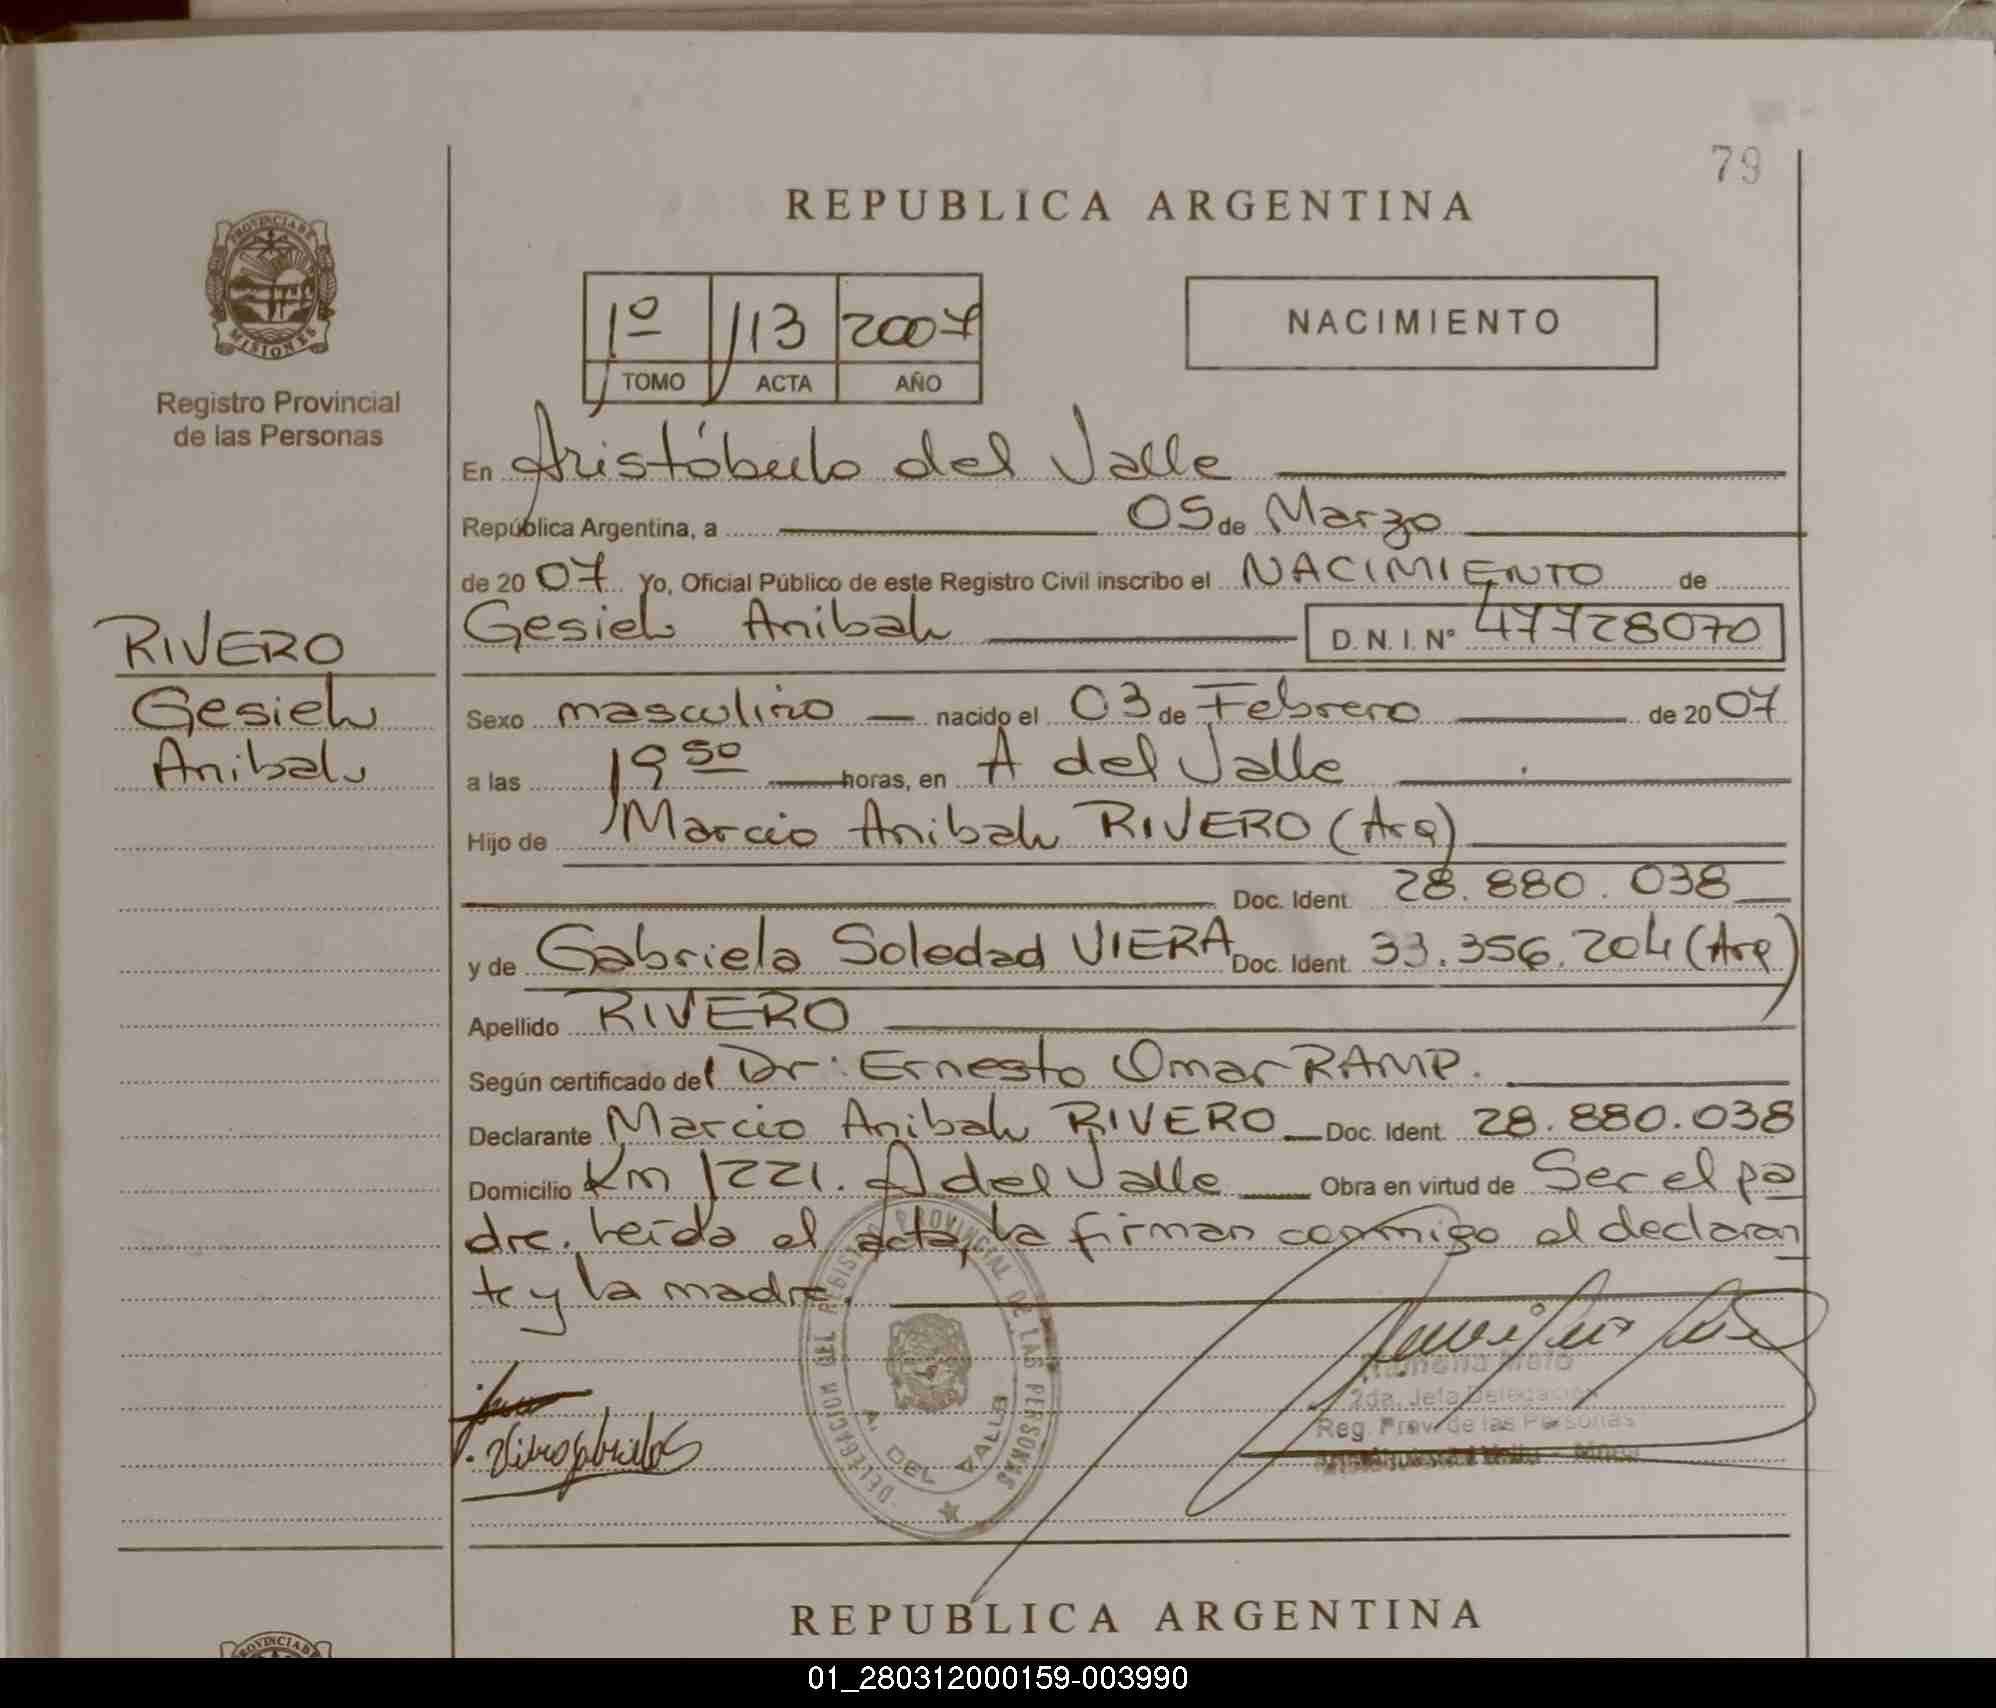 79
REPUBLICA ARGENTINA
PROVINCIA DE
MISIONES
Registro Provincial
de las Personas
1º 113 2007
TOMO ACTA AÑO
NACIMIENTO
En Aristóbulo del Valle
República Argentina, a 05 de Marzo
de 2007 Yo, Oficial Público de este Registro Civil inscribo el NACIMIENTO de
Gesiel Anibal D. N. I. Nº 47728070
RIVERO
Gesiel
Anibal
Sexo masculino nacido el 03 de Febrero de 2007
a las 19 50 horas, en A del Valle
Hijo de Marcio Anibal RIVERO (Arg)
Doc. Ident. 28.880.038
y de Gabriela Soledad VIERA Doc. Ident. 33.356.204 (Arg)
Apellido RIVERO
Según certificado del Dr: Ernesto Omar RAMP.
Declarante Marcio Anibal RIVERO Doc. Ident. 28.880.038
Domicilio Km 1221. A del Valle Obra en virtud de Ser el pa
dre. Leída el acta, la firman conmigo el declaran
te y la madre.
DELEGACION DEL REGISTRO PROVINCIAL DE LAS PERSONAS
A. DEL VALLE
Ramona Melo
2da. Jefa Delegación
Reg. Prov. de las Personas
REPUBLICA ARGENTINA
PROVINCIA DE
01_280312000159-003990